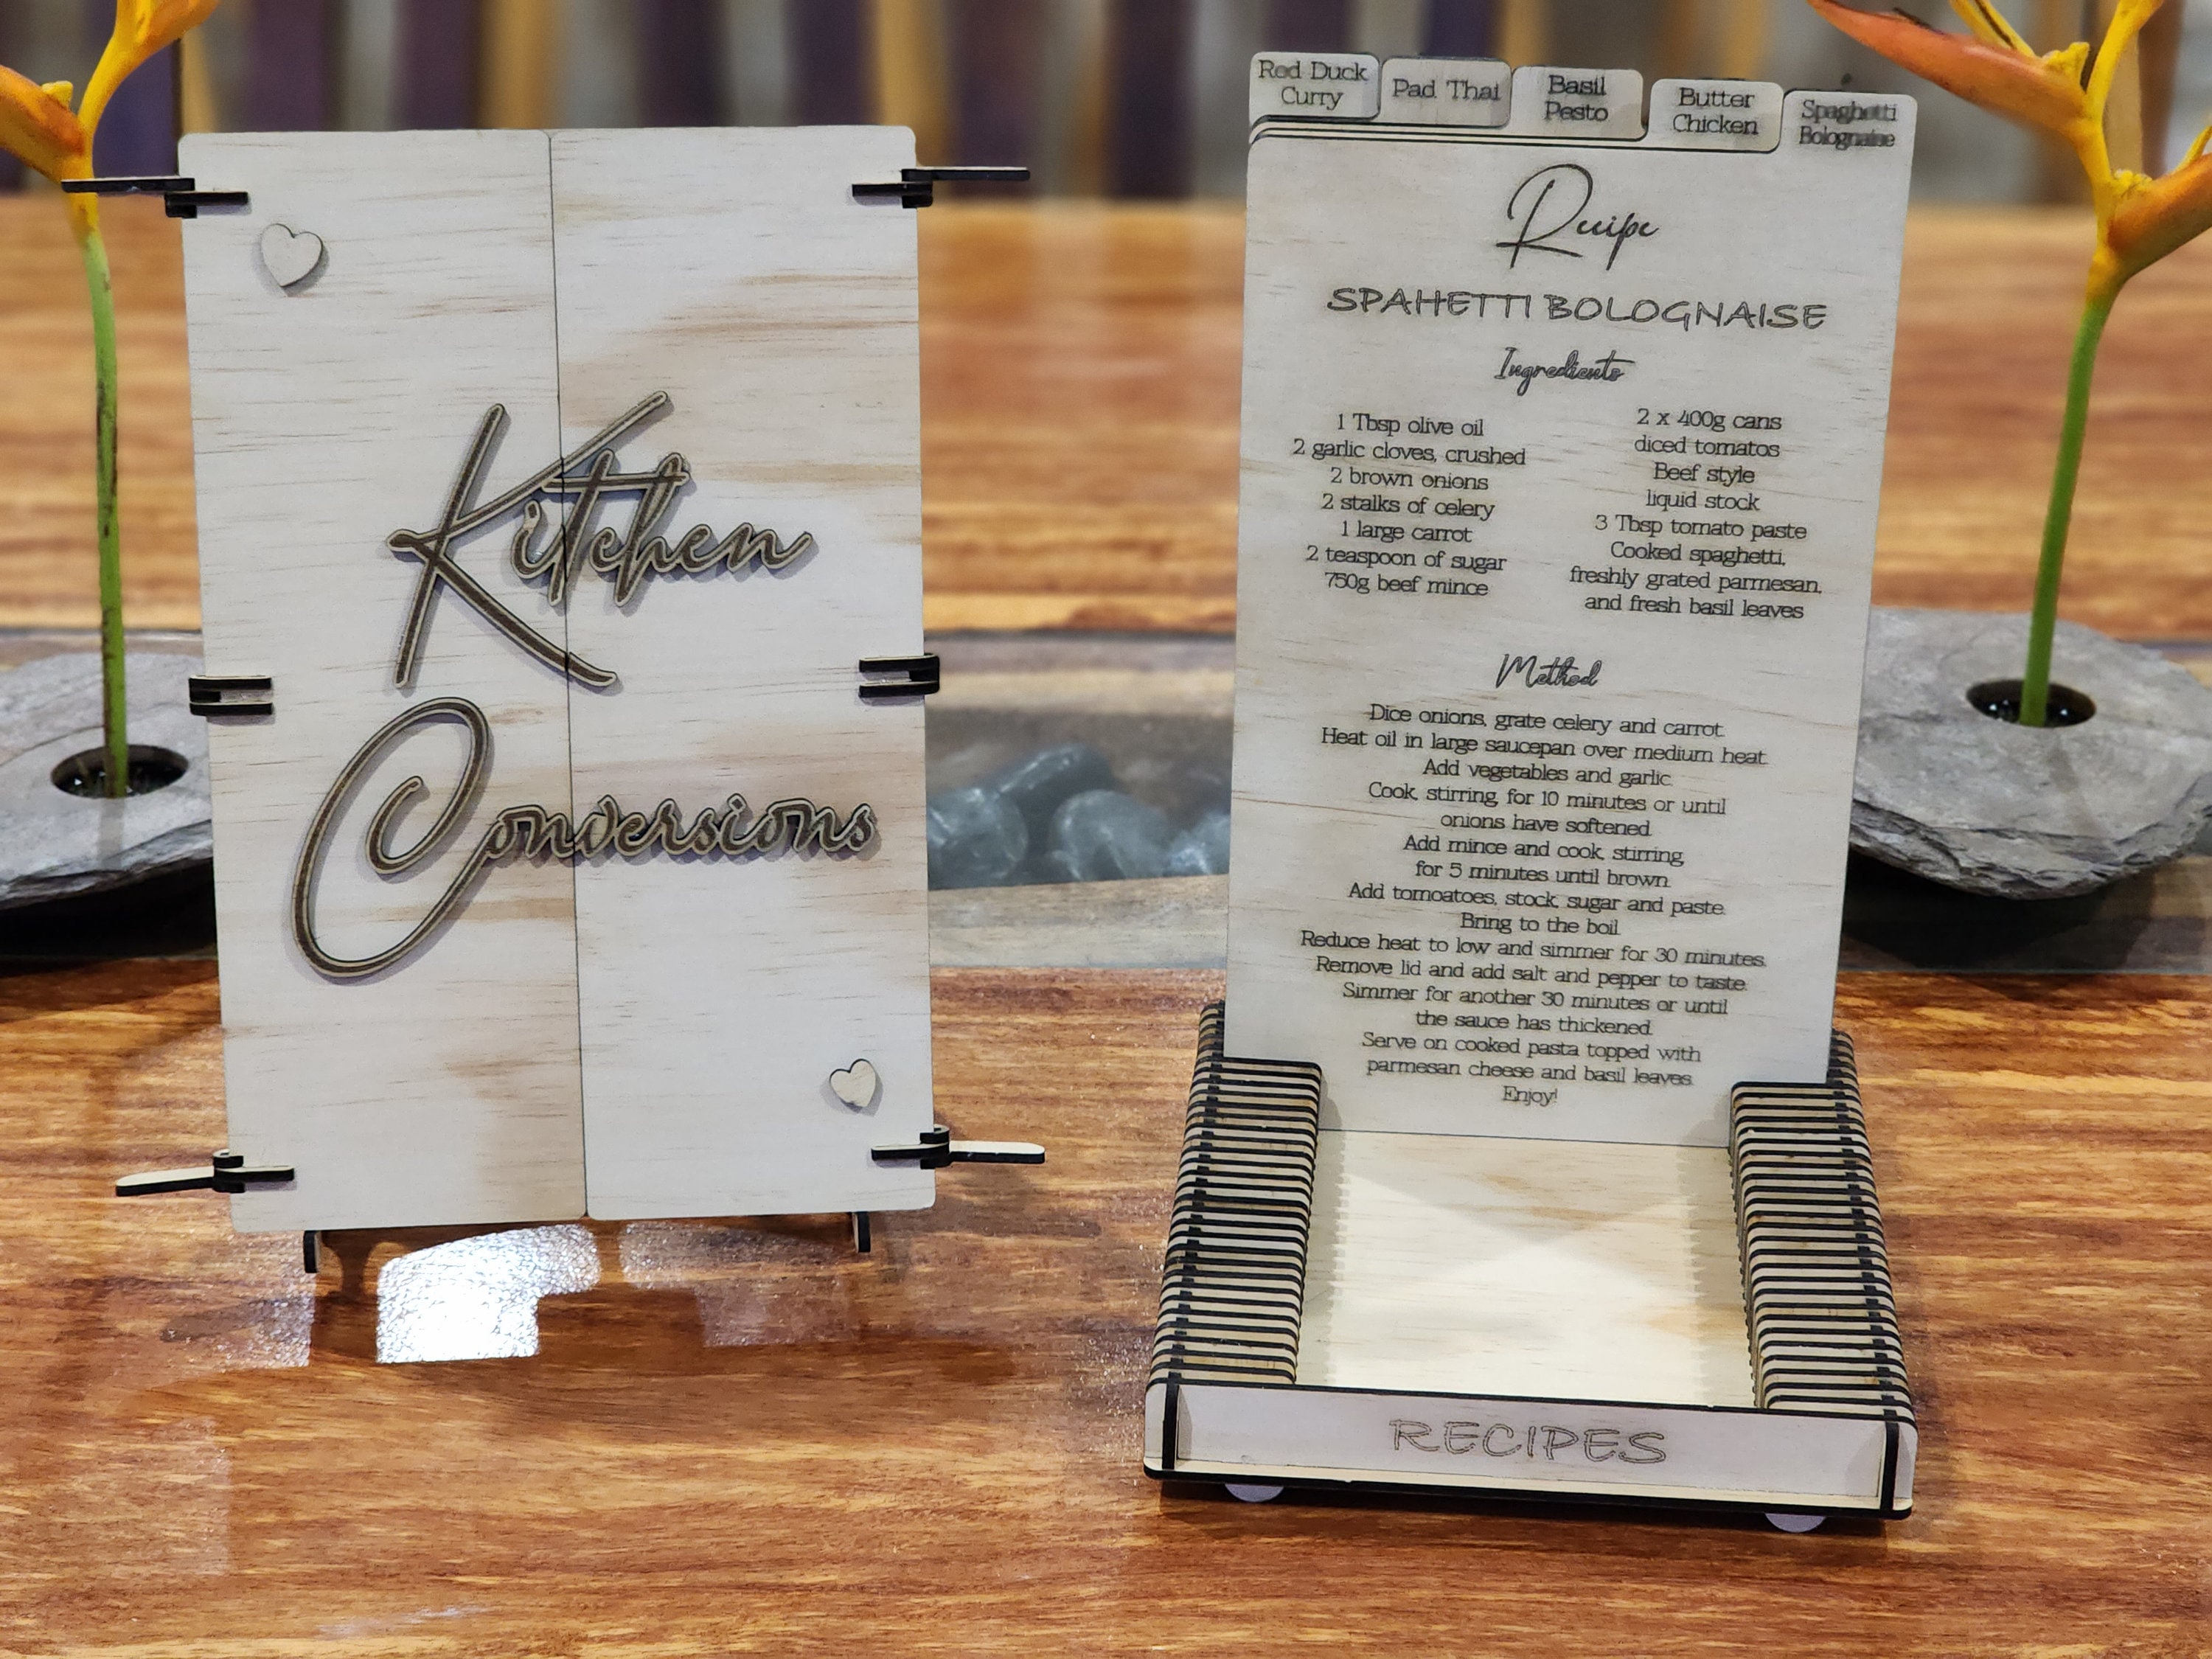 Kitchen
Conversions
Red Duck
Curry
Pad Thai
Basil
Pesto
Butter
Chicken
Spaghetti
Bolognaise
Recipe
SPAHETTI BOLOGNAISE
Ingredients
1 Tbsp olive oil
2 garlic cloves, crushed
2 brown onions
2 stalks of celery
1 large carrot
2 teaspoon of sugar
750g beef mince
2 x 400g cans
diced tomatos
Beef style
liquid stock
3 Tbsp tomato paste
Cooked spaghetti,
freshly grated parmesan,
and fresh basil leaves
Method
Dice onions, grate celery and carrot.
Heat oil in large saucepan over medium heat.
Add vegetables and garlic.
Cook, stirring, for 10 minutes or until
onions have softened.
Add mince and cook, stirring,
for 5 minutes until brown.
Add tomoatoes, stock, sugar and paste.
Bring to the boil.
Reduce heat to low and simmer for 30 minutes.
Remove lid and add salt and pepper to taste.
Simmer for another 30 minutes or until
the sauce has thickened.
Serve on cooked pasta topped with
parmesan cheese and basil leaves.
Enjoy!
RECIPES